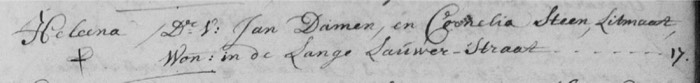 Heleena Dr. V: Jan Damen, en Cornelia Steen, Litmaat,
† Won: in de Lange Lauwer-Straat - - - - - - - 17.